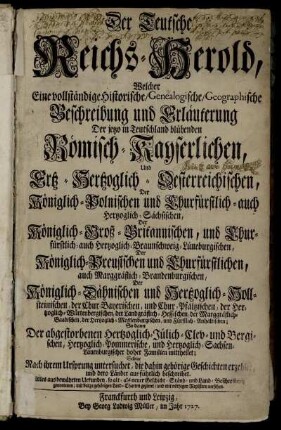 Der Teutsche
Reichs-Herold,
Welcher
Eine vollständige Historische/Genealogische/Geographische
Beschreibung und Erläuterung
Der jetzo in Teutschland blühenden
Römisch-Kayserlichen,
Und
Ertz-Hertzoglich-Oesterreichischen,
Der
Königlich-Polnischen und Churfürstlich-auch
Hertzoglich-Sächsischen,
Der
Königlich-Groß-Britannischen, und Chur-
fürstlich-auch Hertzoglich-Braunschweig-Lüneburgischen,
Der
Königlich-Preussischen und Churfürstlichen,
auch Marggräflich-Brandenburgischen,
Der
Königlich-Dähnischen und Hertzoglich-Holl-
steinischen, der Chur-Bayerischen, und Chur-Pfältzischen, der Her-
tzoglich-Würtembergischen, der Landgräflich-Hessischen, der Marggräflich-
Badischen, der Hertzoglich-Mecklenburgischen, und Fürstlich-Anhaltischen,
So dann
Der abgestorbenen Hertzoglich-Jülich-Clev-und Bergi-
schen, Hertzoglich-Pommerische, und Hertzoglich-Sachsen-
Lauenburgischer hoher Familien mittheilet;
Selbige
Nach ihrem Ursprung untersuchet, die dahin gehörige Geschichten
und dero Länder ausführlich beschreibet.
Alles aus bewährten Urkunden,
Franckfurth und Leipzig,
Bey Georg Ludwig
im Jahr 1727.